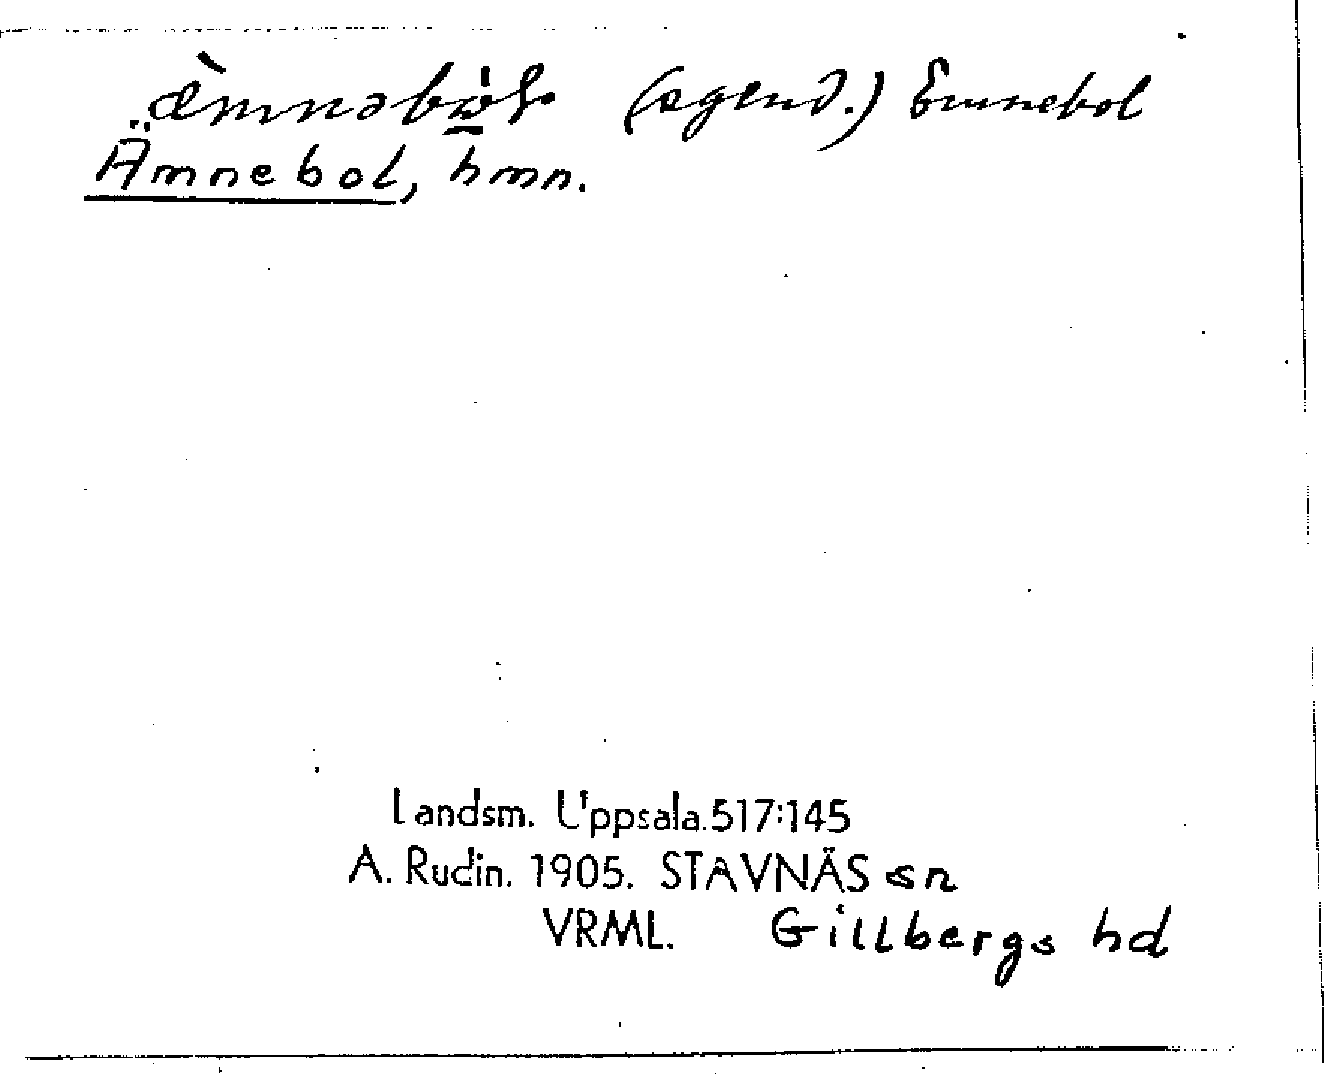 (egend.) Emnebol
Ämnebol, hmn.
Landsm. Uppsala.517:145
A. Rudin. 1905. STAVNÄS sn
VRML. Gillbergs hd